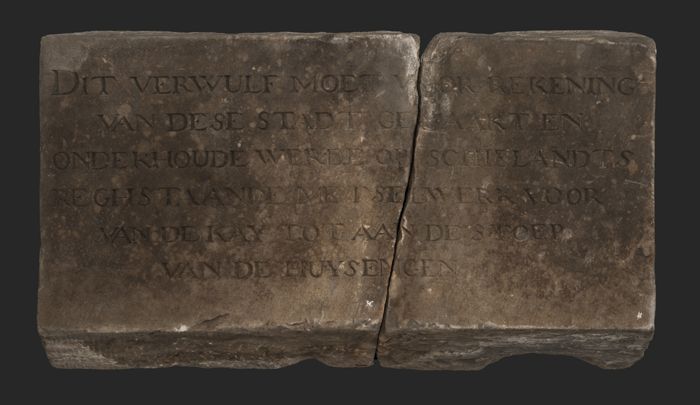 DIT VERWULF MOET VOOR REKENING
VAN DESE STADT GEMAAKT EN
ONDERHOUDE WERDE OP SCHIELANDTS
REGHSTAANDE METSELWERK VOOR
VAN DE KAY TOT AAN DE STOEP
VAN DE HUYSEN